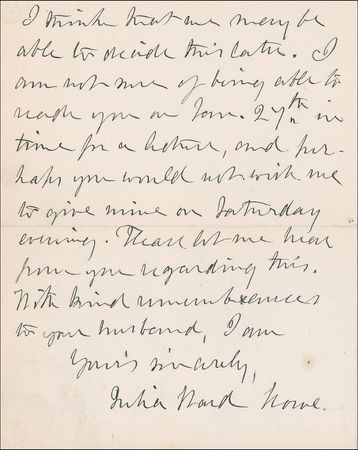 I think that we may be
able to decide this later. I
am not sure of being able to
reach you on Jan. 27th in
time for a lecture, and per-
haps you would not wish me
to give mine on Saturday
evening. Please let me hear
from you regarding this.
With kind remembrances
to your husband, I am
Yours sincerely,
Julia Ward Howe.